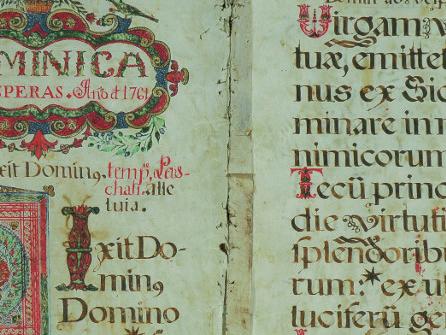 MINICA
SPERAS. Año d 1701
xit Domin9. temp. Pas-
chali. alle
luia.
IxitDo-
min9
Domino
Virgam v
tuæ, emittet
nus ex Sio
minare in m
nimicorum
Tecũ princ
die virtuti
splendoribu
rum: ex ut
luciferũ ge